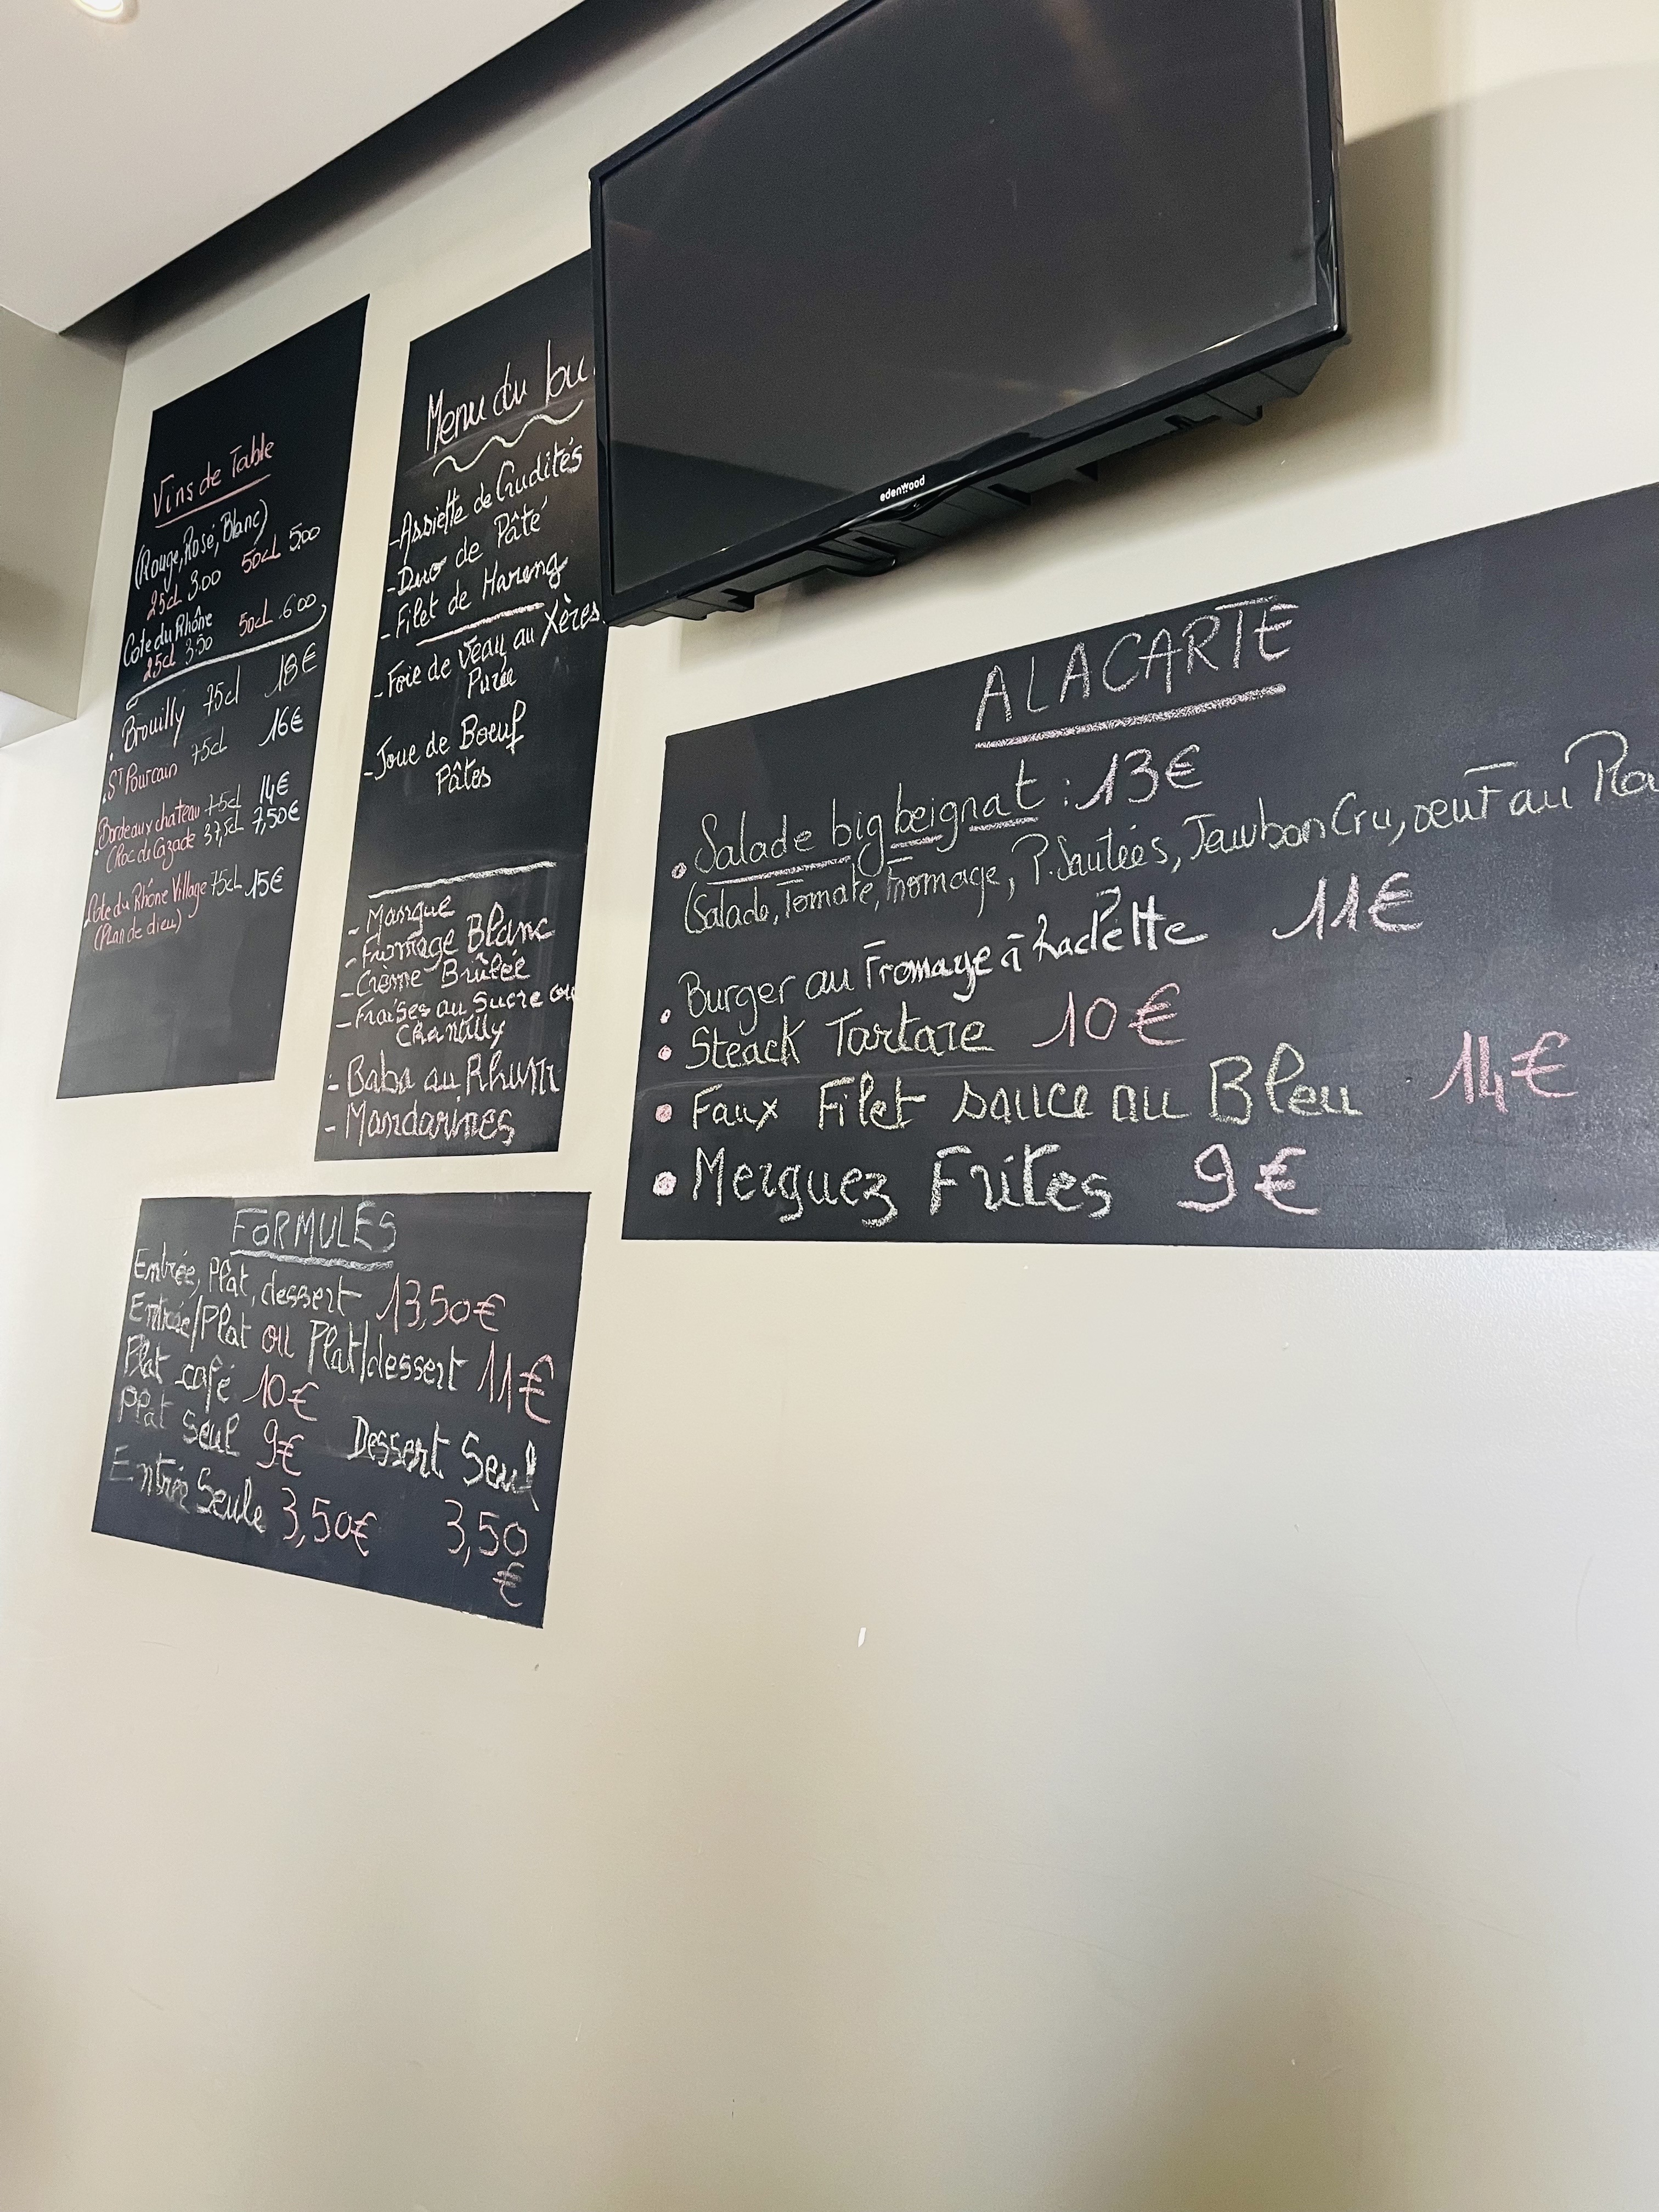 Vins de Table
(Rouge, Rosé, Blanc)
25cl 3.00 50cl 5.00
Cote du Rhône
25cl 3.50 50cl .6.00
. Brouilly 75cl 18€
. ST Pourcain 75cl 16€
. Bordeaux chateau 75cl 14€
37,5cl 7,50€
Cote du Rhône Village 75cl 15€
(Plan de dieu)
Menu du
- Assiette de Crudités
- Duo de Pâté
- Filet de Hareng
- Foie de Veau au Xères
Purée
- Joue de Boeuf
Pâtes
- Mangue
- Fromage Blanc
- Crème Brûlée
- Fraises au Sucre ou
Chantilly
- Baba au Rhum
- Mandarines
FORMULES
Entrée, Plat, dessert 13,50€
Entrée/Plat ou Plat/dessert 11€
Plat café 10€
Plat Seul 9€ Dessert Seul
Entrée Seule 3,50€ 3,50
€
edenwood
A LA CARTE
• Salade big beignat : 13€
(Salade, Tomate, Fromage, P. Sautées, Jambon Cru, oeuf au
• Burger au Fromage à Raclette 11€
• Steack Tartare 10€
• Faux Filet sauce au Bleu 14€
• Merguez Frites 9€